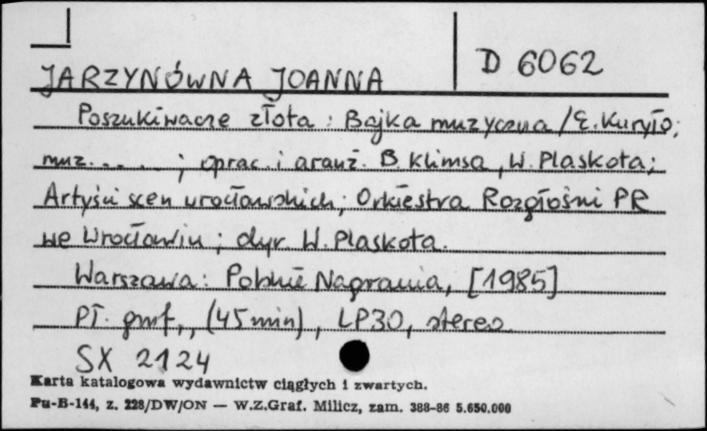 D 6062
JARZYNÓWNA JOANNA
Poszukiwacze złota : Bajka muzyczna / E. Kuryło;
muz. . . . . ; oprac. i aranż. B. Klimsa, W. Plaskota;
Artyści scen wrocławskich; Orkiestra Rozgłośni PR
we Wrocławiu ; dyr W. Plaskota.
Warszawa : Polskie Nagrania, [1985]
Pł. gmf., (45 min), LP30, stereo
SX 2124
Karta katalogowa wydawnictw ciągłych i zwartych.
Pu-B-144, z. 228/DW/ON — W.Z.Graf. Milicz, zam. 388-86 5.650.000